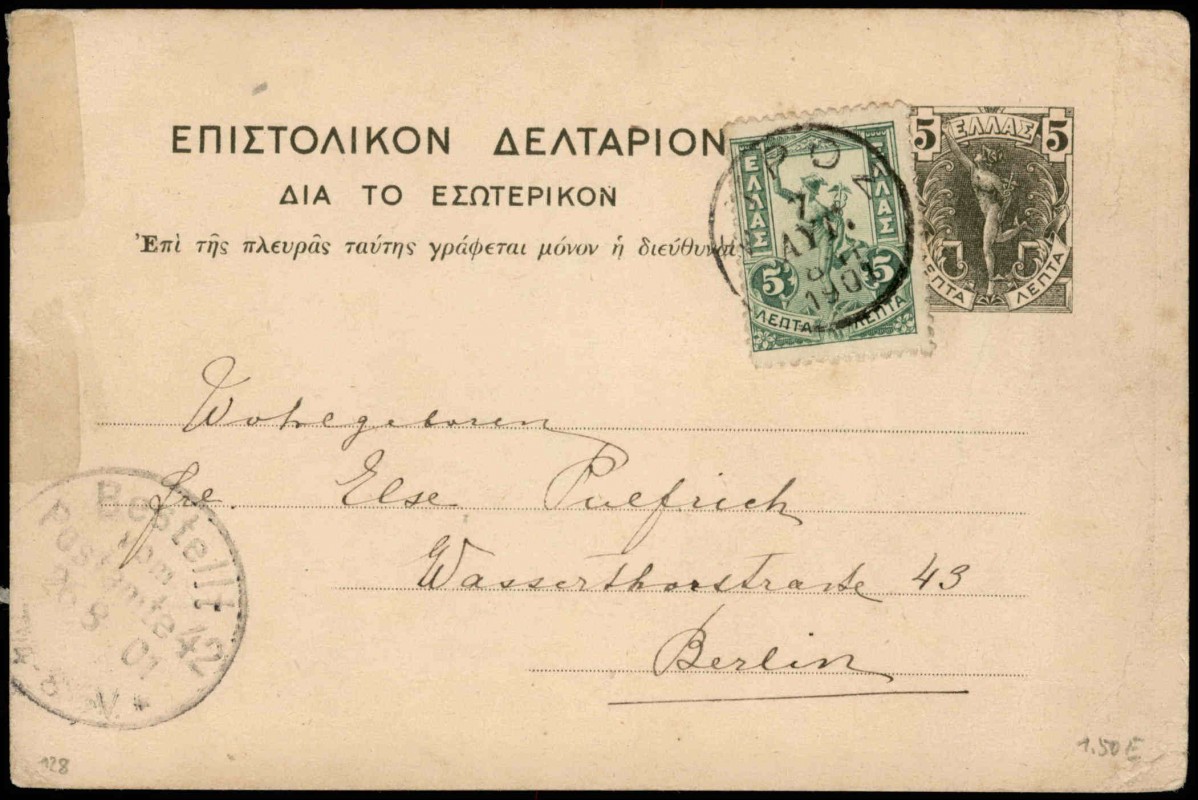 ΕΠΙΣΤΟΛΙΚΟΝ ΔΕΛΤΑΡΙΟΝ
ΔΙΑ ΤΟ ΕΣΩΤΕΡΙΚΟΝ
Ἐπὶ τῆς πλευρᾶς ταύτης γράφεται μόνον ἡ διεύθυνσι
5 ΕΛΛΑΣ 5
ΛΕΠΤΑ ΛΕΠΤΑ
ΕΛΛΑΣ ΛΛΑΣ
5 5
ΛΕΠΤΑ ΛΕΠΤΑ
7
ΑΥΓ.
1901
Wohlgeboren
Frl. Else Pulfrich
Wasserthorstraße 43
Berlin
Bestellt
vom
Postamte 42
26 8 01
V.
128
1.50 E